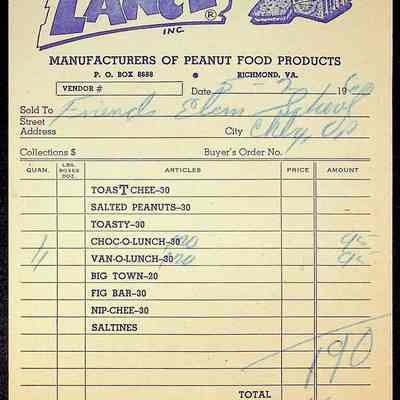 LANCE ®
INC.
MANUFACTURERS OF PEANUT FOOD PRODUCTS
P. O. BOX 8688 ● RICHMOND, VA.
VENDOR # Date 5-2 1960
Sold To Friends Elem School
Street
Address City
Collections $ Buyer's Order No.
QUAN. LBS. BOXES DOZ. ARTICLES PRICE AMOUNT
TOASTCHEE-30
SALTED PEANUTS-30
TOASTY-30
1 CHOC-O-LUNCH-30 95
1 VAN-O-LUNCH-30 95
BIG TOWN-20
FIG BAR-30
NIP-CHEE-30
SALTINES
190
TOTAL